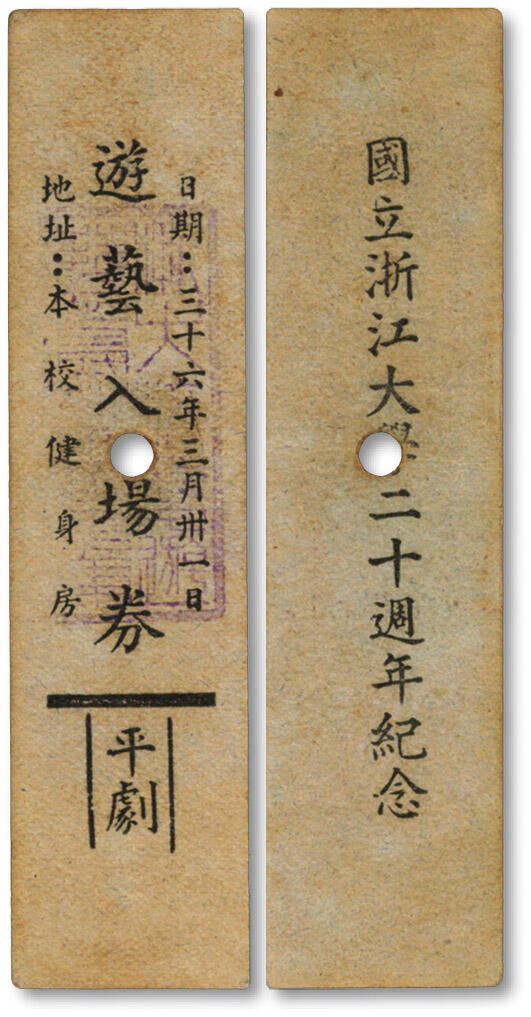 日期：三十六年三月卅一日
遊藝入場券
地址：本校健身房
平劇
國立浙江大學二十週年紀念